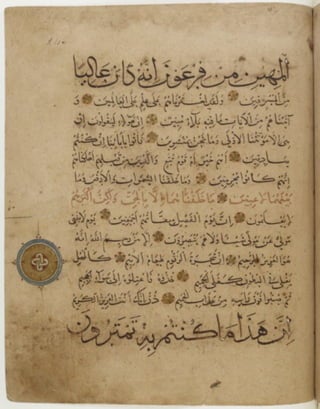 المهين من فرعون إنه كان عاليا
من المسرفين ولقد اخترناهم على علم على العالمين و
آتيناهم من الآيات ما فيه بلاء مبين إن هؤلاء ليقولون إن
هي إلا موتتنا الأولى وما نحن بمنشرين فأتوا بآبائنا إن كنتم
صادقين أهم خير أم قوم تبع والذين من قبلهم أهلكناهم
إنهم كانوا مجرمين وما خلقنا السموات والأرض وما
بينهما لاعبين ما خلقناهما إلا بالحق ولكن أكثرهم
لا يعلمون إن يوم الفصل ميقاتهم أجمعين يوم لا يغني
مولى عن مولى شيئا ولا هم ينصرون إلا من رحم الله إنه
هو العزيز الرحيم إن شجرة الزقوم طعام الأثيم كالمهل
يغلي في البطون كغلي الحميم خذوه فاعتلوه إلى سواء الجحيم
ثم صبوا فوق رأسه من عذاب الحميم ذق إنك أنت العزيز الكريم
إن هذا ما كنتم به تمترون